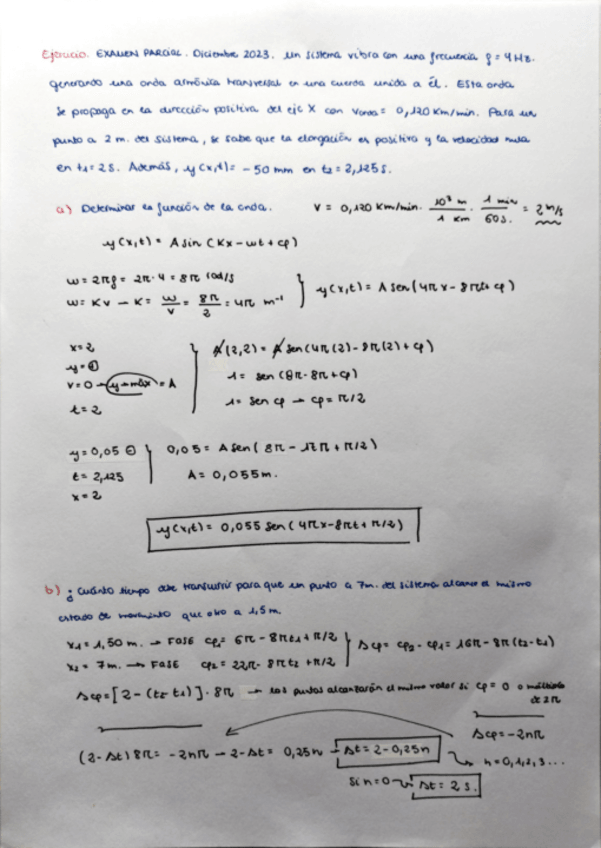 Ejercicio. EXAMEN PARCIAL. Diciembre 2023. Un sistema vibra con una frecuencia f = 4 Hz.
generando una onda armónica transversal en una cuerda unida a él. Esta onda
se propaga en la dirección positiva del eje X con Vonda = 0,120 Km/min. Para un
punto a 2 m. del sistema, se sabe que la elongación es positiva y la velocidad nula
en t1 = 2 s. Además, y(x,t) = -50 mm en t2 = 2,125 s.
a) Determinar la función de la onda. V = 0,120 Km/min. 10³ m / 1 Km 1 min / 60 s. = 2 m/s
y(x,t) = A sin (Kx - wt + φ)
w = 2πf = 2π·4 = 8π rad/s
w = Kv → K = w/v = 8π/2 = 4π m⁻¹ } y(x,t) = A sen(4πx - 8πt + φ)
x = 2 A(2,2) = A sen(4π(2) - 8π(2) + φ)
y = ⊕ 1 = sen (8π - 8π + φ)
v = 0 → y → máx = A 1 = sen φ → φ = π/2
t = 2
y = 0,05 ⊖ 0,05 = A sen( 8π - 17π + π/2)
t = 2,125 A = 0,055 m.
x = 2
y(x,t) = 0,055 sen( 4πx - 8πt + π/2)
b) ¿Cuánto tiempo debe transcurrir para que un punto a 7m. del sistema alcance el mismo
estado de movimiento que otro a 1,5 m.
x1 = 1,50 m. → FASE φ1 = 6π - 8πt1 + π/2
x2 = 7 m. → FASE φ2 = 22π - 8πt2 + π/2 } Δφ = φ2 - φ1 = 16π - 8π(t2 - t1)
Δφ = [2 - (t2 - t1)] · 8π → los puntos alcanzarán el mismo valor si φ = 0 o múltiplo
de 2π
Δφ = -2nπ
(2 - Δt) 8π = -2nπ → 2 - Δt = 0,25n → Δt = 2 - 0,25n n = 0, 1, 2, 3 ...
Si n = 0 → Δt = 2 s.